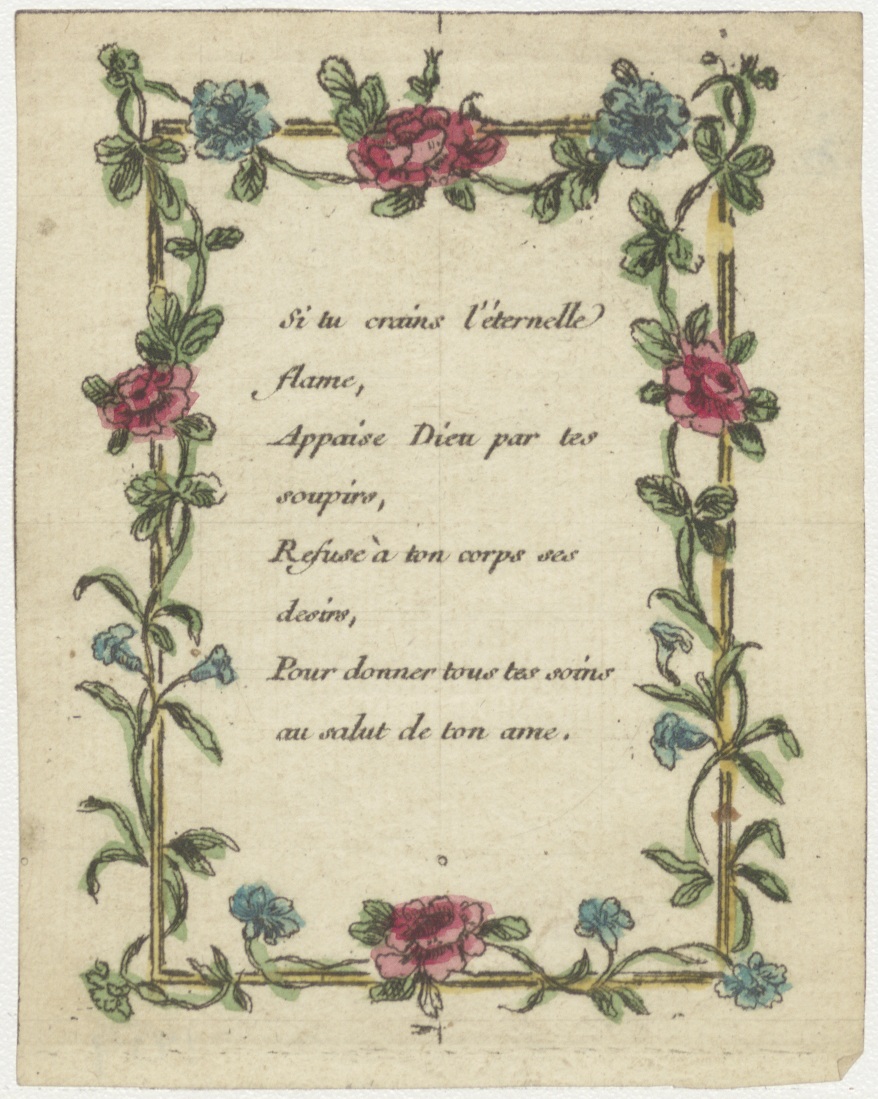 Si tu crains l'éternelle
flame,
Appaise Dieu par tes
soupirs,
Refuse à ton corps ses
desirs,
Pour donner tous tes soins
au salut de ton ame.